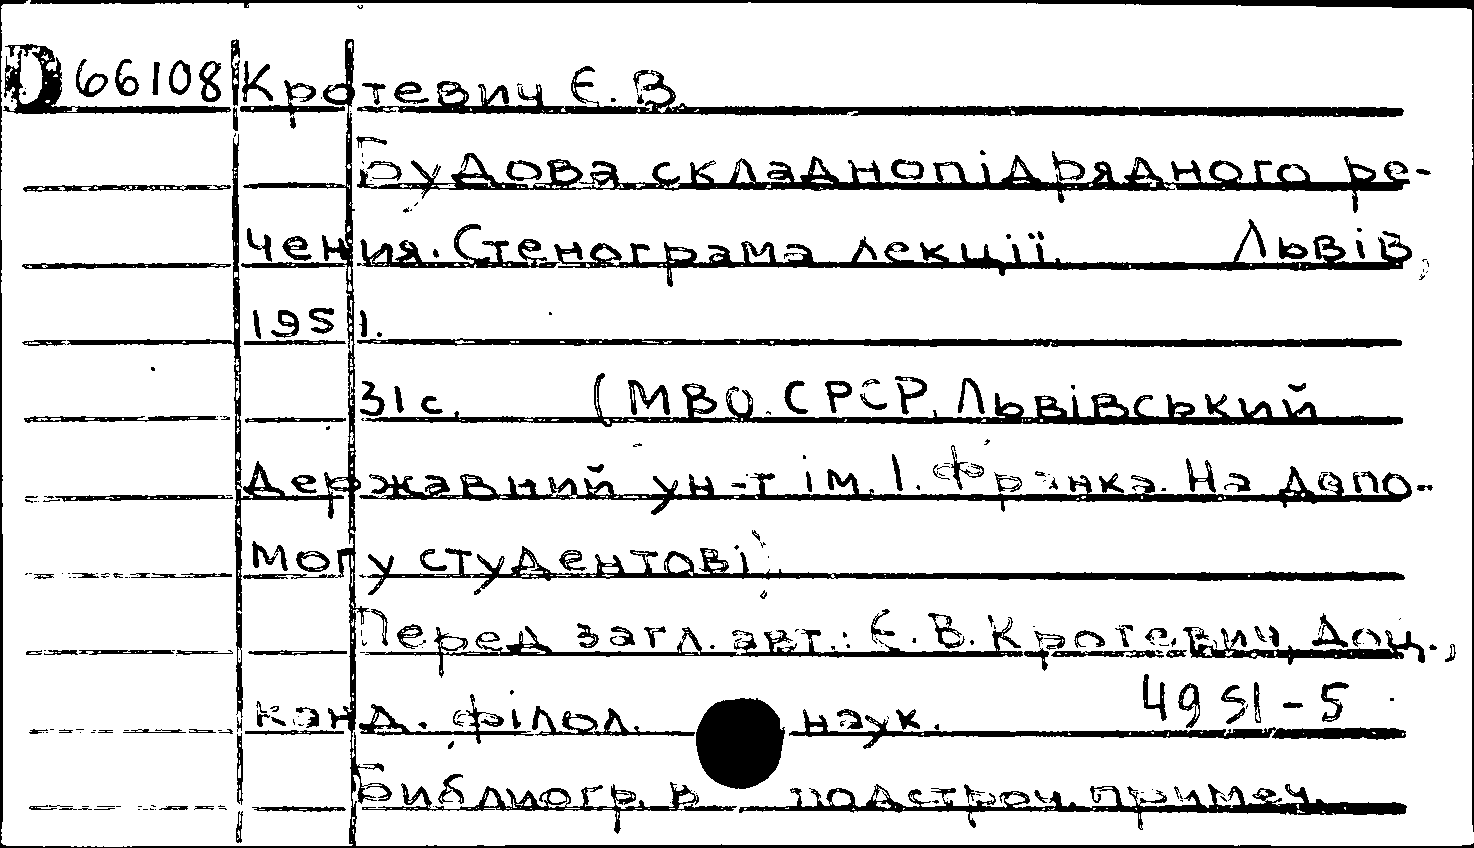 D 66108 Кротевич Є. В.
Будова складнопідрядного ре-
чення. Стенограма лекції. Львів,
1951.
31 с. (МВО. СРСР. Львівський
Державний ун-т ім. І. Франка. На допо-
могу студентові).
Перед загл. авт.: Є. В. Кротевич, Доц.,
канд. філол. наук. 4951-5
Библиогр. в подстроч. примеч.